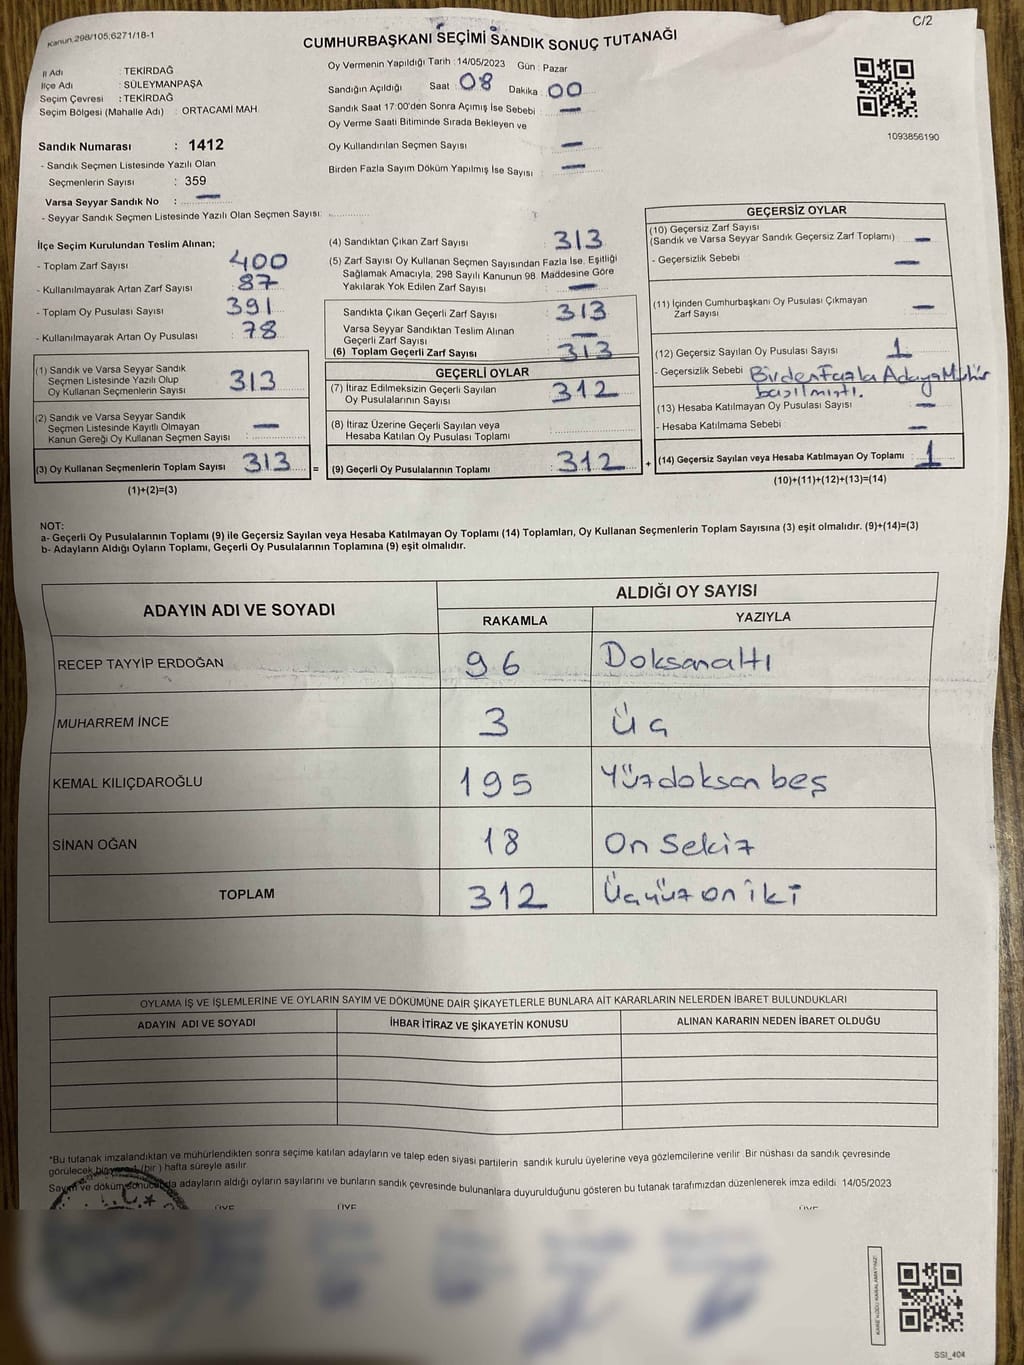 Kanun.298/105;6271/18-1
C/2
CUMHURBAŞKANI SEÇİMİ SANDIK SONUÇ TUTANAĞI
İl Adı : TEKİRDAĞ
İlçe Adı : SÜLEYMANPAŞA
Seçim Çevresi : TEKİRDAĞ
Seçim Bölgesi (Mahalle Adı) : ORTACAMİ MAH.
Sandık Numarası : 1412
- Sandık Seçmen Listesinde Yazılı Olan
Seçmenlerin Sayısı : 359
Varsa Seyyar Sandık No : —
- Seyyar Sandık Seçmen Listesinde Yazılı Olan Seçmen Sayısı:
Oy Vermenin Yapıldığı Tarih :14/05/2023 Gün : Pazar
Sandığın Açıldığı Saat : 08 Dakika : 00
Sandık Saat 17:00'den Sonra Açımış İse Sebebi : —
Oy Verme Saati Bitiminde Sırada Bekleyen ve
Oy Kullandırılan Seçmen Sayısı : —
Birden Fazla Sayım Döküm Yapılmış İse Sayısı : —
1093856190
İlçe Seçim Kurulundan Teslim Alınan;
- Toplam Zarf Sayısı : 400
- Kullanılmayarak Artan Zarf Sayısı : 87
- Toplam Oy Pusulası Sayısı : 391
- Kullanılmayarak Artan Oy Pusulası : 78
(1) Sandık ve Varsa Seyyar Sandık
Seçmen Listesinde Yazılı Olup
Oy Kullanan Seçmenlerin Sayısı : 313
(2) Sandık ve Varsa Seyyar Sandık
Seçmen Listesinde Kayıtlı Olmayan
Kanun Gereği Oy Kullanan Seçmen Sayısı : —
(3) Oy Kullanan Seçmenlerin Toplam Sayısı : 313
(1)+(2)=(3)
(4) Sandıktan Çıkan Zarf Sayısı : 313
(5) Zarf Sayısı Oy Kullanan Seçmen Sayısından Fazla İse, Eşitliği
Sağlamak Amacıyla, 298 Sayılı Kanunun 98. Maddesine Göre
Yakılarak Yok Edilen Zarf Sayısı : —
Sandıkta Çıkan Geçerli Zarf Sayısı : 313
Varsa Seyyar Sandıktan Teslim Alınan
Geçerli Zarf Sayısı : —
(6) Toplam Geçerli Zarf Sayısı : 313
=
GEÇERLİ OYLAR
(7) İtiraz Edilmeksizin Geçerli Sayılan
Oy Pusulalarının Sayısı : 312
(8) İtiraz Üzerine Geçerli Sayılan veya
Hesaba Katılan Oy Pusulası Toplamı :
(9) Geçerli Oy Pusulalarının Toplamı : 312
+
GEÇERSİZ OYLAR
(10) Geçersiz Zarf Sayısı
(Sandık ve Varsa Seyyar Sandık Geçersiz Zarf Toplamı) : —
- Geçersizlik Sebebi : —
(11) İçinden Cumhurbaşkanı Oy Pusulası Çıkmayan
Zarf Sayısı : —
(12) Geçersiz Sayılan Oy Pusulası Sayısı : 1
- Geçersizlik Sebebi Birden Fazla Adaya Mühür
basılmıştı.
(13) Hesaba Katılmayan Oy Pusulası Sayısı : —
- Hesaba Katılmama Sebebi : —
(14) Geçersiz Sayılan veya Hesaba Katılmayan Oy Toplamı : 1
(10)+(11)+(12)+(13)=(14)
NOT:
a- Geçerli Oy Pusulalarının Toplamı (9) ile Geçersiz Sayılan veya Hesaba Katılmayan Oy Toplamı (14) Toplamları, Oy Kullanan Seçmenlerin Toplam Sayısına (3) eşit olmalıdır. (9)+(14)=(3)
b- Adayların Aldığı Oyların Toplamı, Geçerli Oy Pusulalarının Toplamına (9) eşit olmalıdır.
ADAYIN ADI VE SOYADI
ALDIĞI OY SAYISI
RAKAMLA YAZIYLA
RECEP TAYYİP ERDOĞAN 96 Doksanaltı
MUHARREM İNCE 3 Üç
KEMAL KILIÇDAROĞLU 195 Yüzdoksan beş
SİNAN OĞAN 18 On Sekiz
TOPLAM 312 Üçyüz on iki
OYLAMA İŞ VE İŞLEMLERİNE VE OYLARIN SAYIM VE DÖKÜMÜNE DAİR ŞİKAYETLERLE BUNLARA AİT KARARLARIN NELERDEN İBARET BULUNDUKLARI
ADAYIN ADI VE SOYADI İHBAR İTİRAZ VE ŞİKAYETİN KONUSU ALINAN KARARIN NEDEN İBARET OLDUĞU
*Bu tutanak imzalandıktan ve mühürlendikten sonra seçime katılan adayların ve talep eden siyasi partilerin sandık kurulu üyelerine veya gözlemcilerine verilir. Bir nüshası da sandık çevresinde
görülecek bir yere 1 (bir ) hafta süreyle asılır.
Sayım ve döküm sonucunda adayların aldığı oyların sayılarını ve bunların sandık çevresinde bulunanlara duyurulduğunu gösteren bu tutanak tarafımızdan düzenlenerek imza edildi. 14/05/2023
ÜYE ÜYE ÜYE
SSI_404